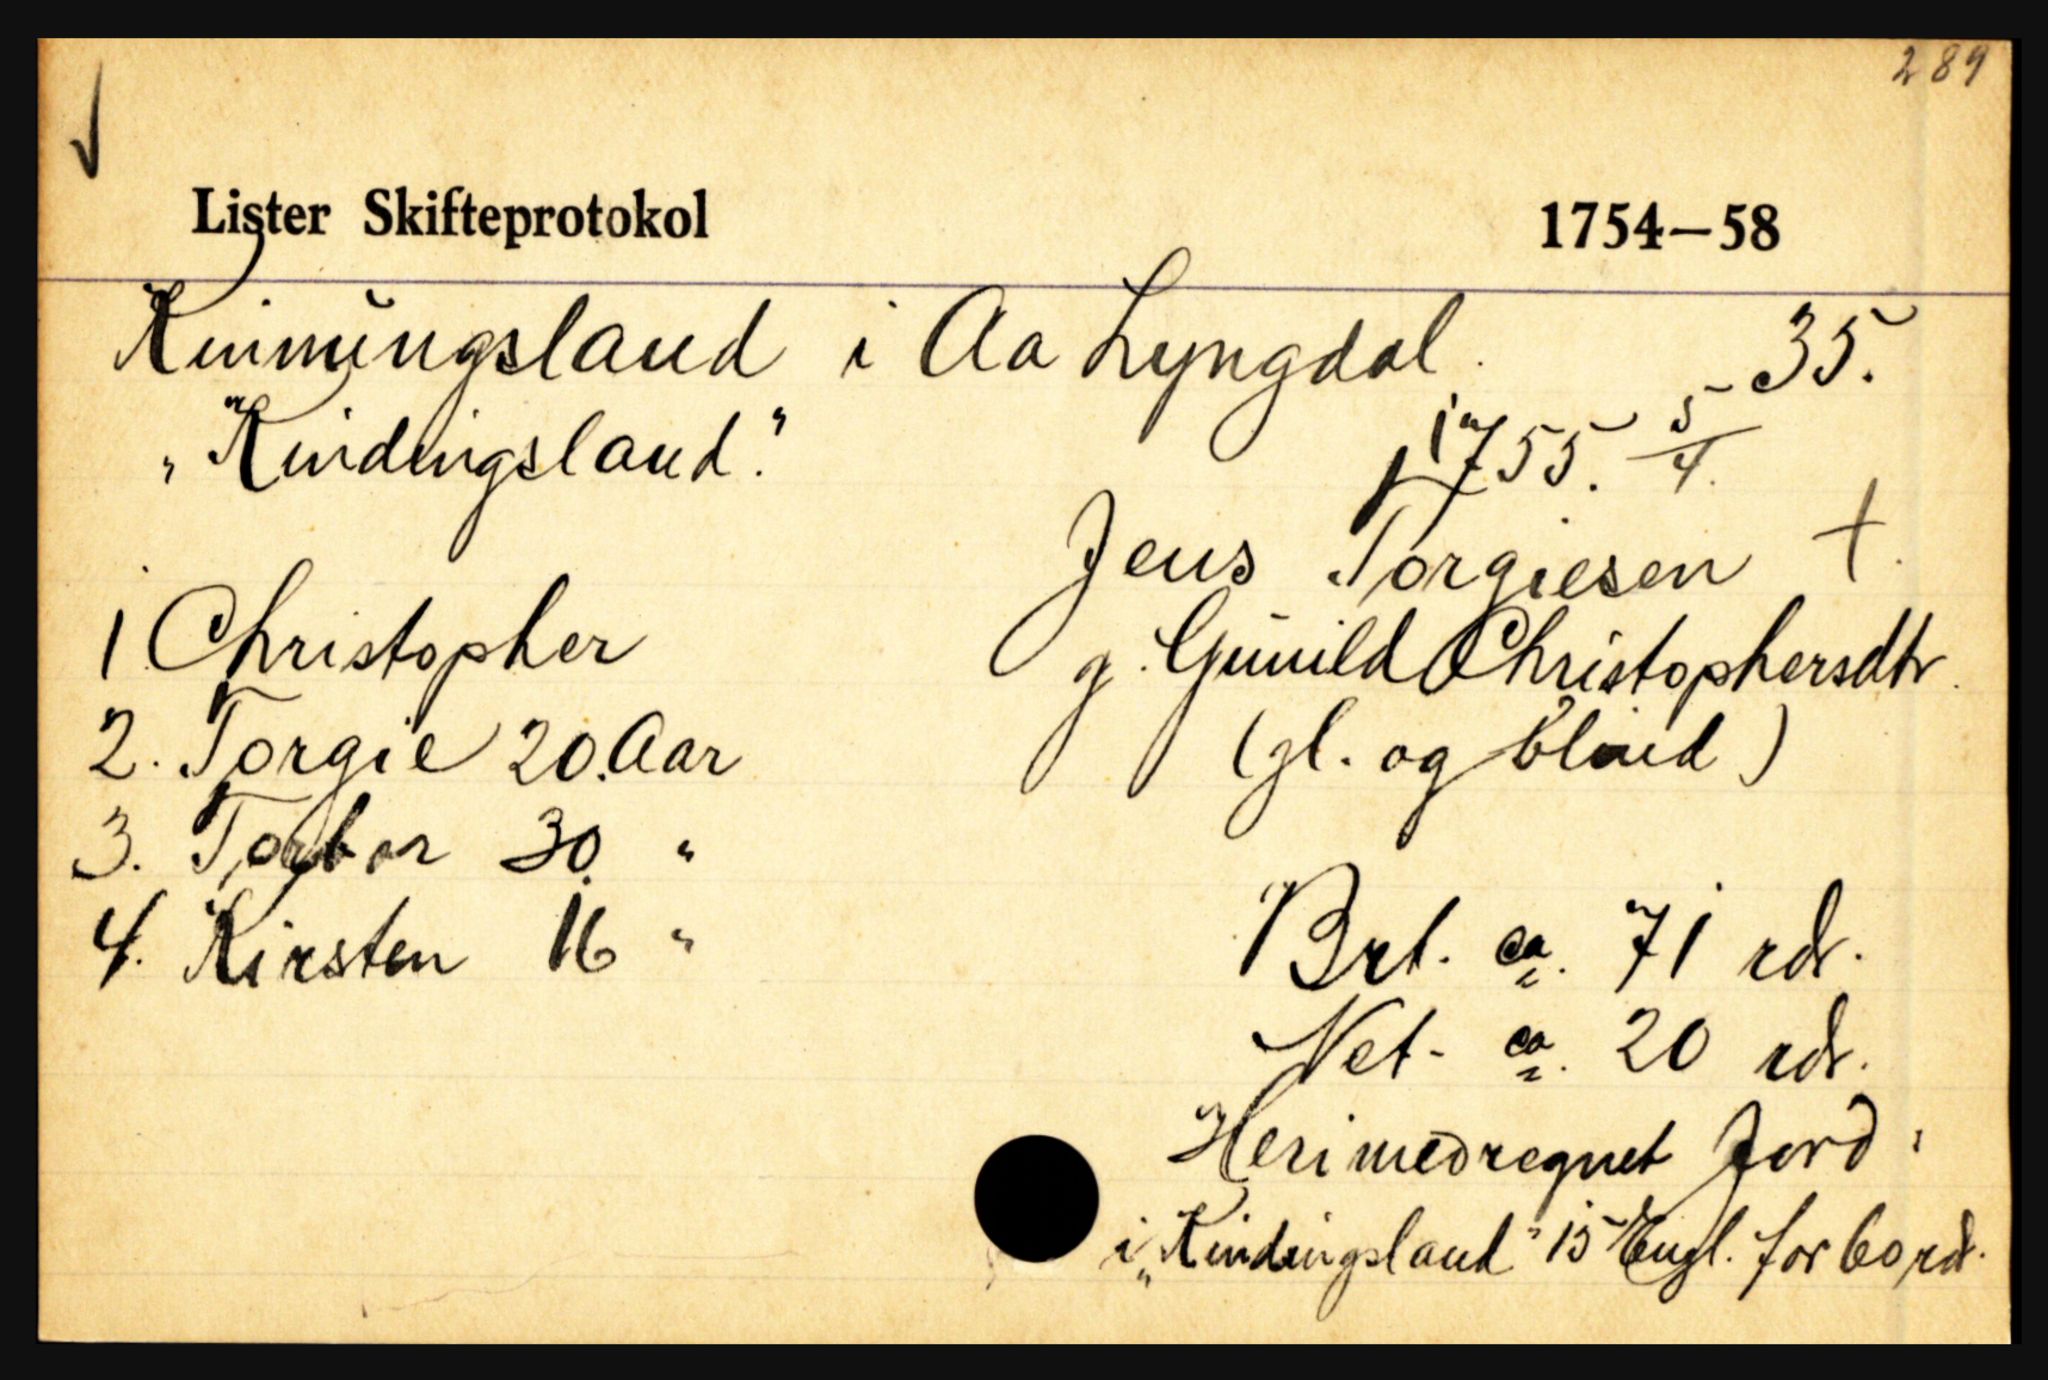 289
Lister Skifteprotokol 1754—58
Kinningsland i Aa Lyngdal. 35.
"Kindingsland." 1755. 5/4.
Jens Torgiesen +.
1 Christopher g. Gunild Christophersdtr.
2. Torgie 20. Aar (gl. og blind)
3. Torbor 30. "
4. Kirsten 16 " Brt. ca. 71 rdr.
Net. ca. 20 rdr.
Heri medregnet Jord
i "Kindingsland" 15 Engl. for 60 rdr.